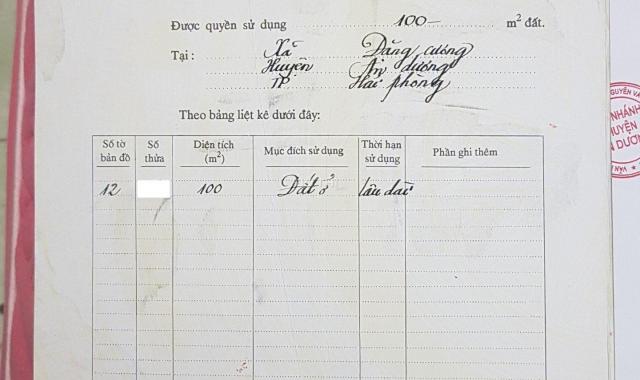 Được quyền sử dụng 100 — m² đất.
Tại : Xã Đặng cương
Huyện An dương
TP Hải phòng
Theo bảng liệt kê dưới đây:
Số tờ bản đồ Số thửa Diện tích (m²) Mục đích sử dụng Thời hạn sử dụng Phần ghi thêm
12 100 Đất ở lâu dài
NGUYÊN VÀ
NHÁNH
HUYỆN
DƯƠN